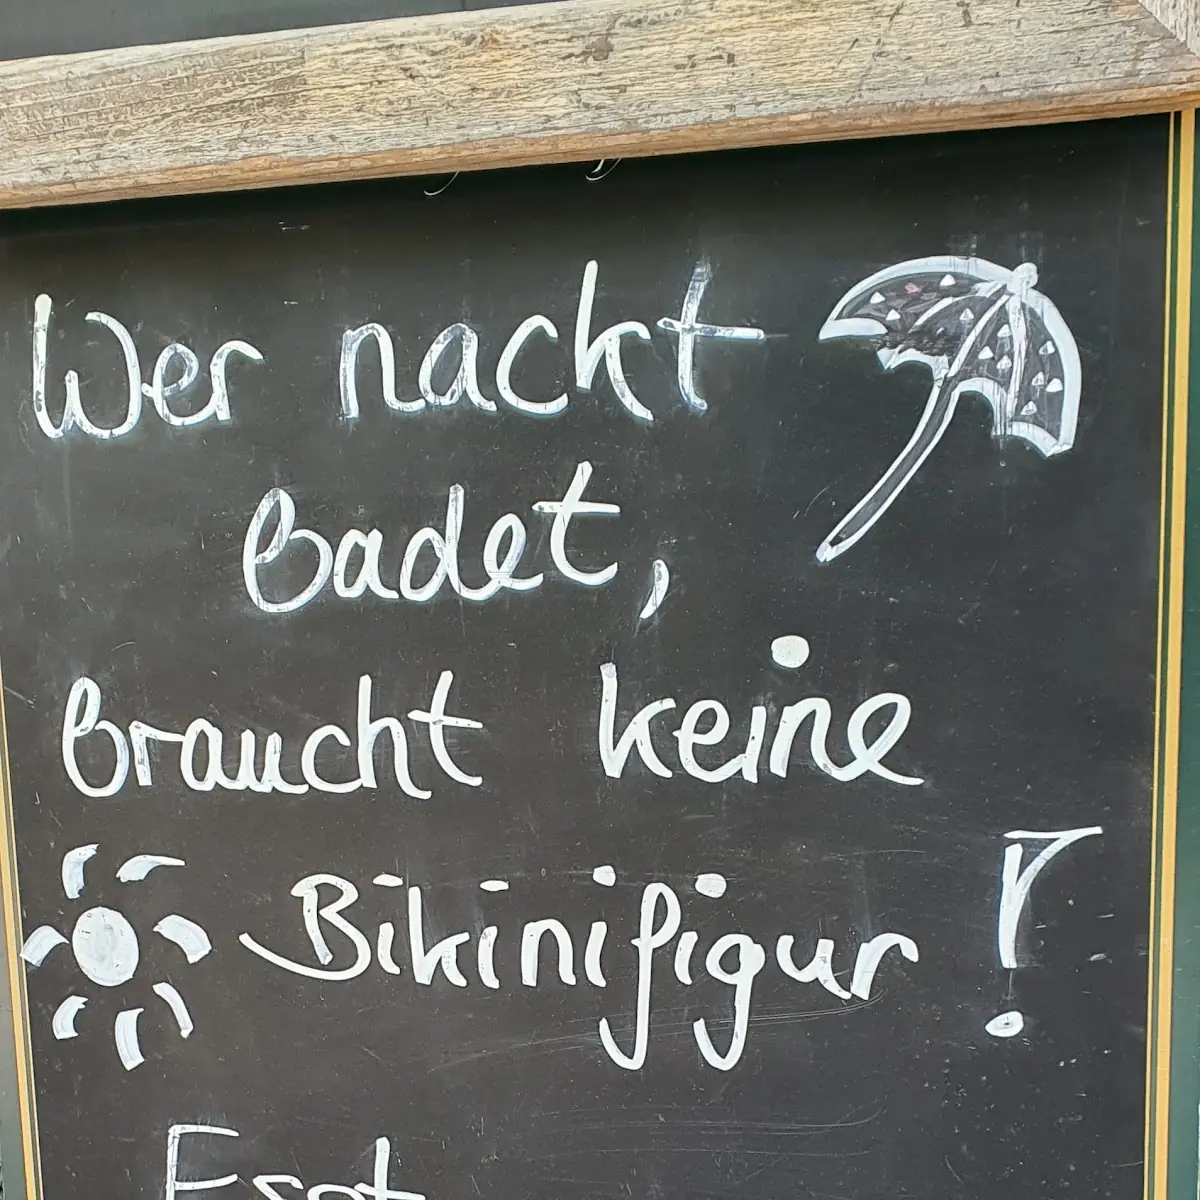 Wer nackt
badet,
braucht keine
Bikinifigur!